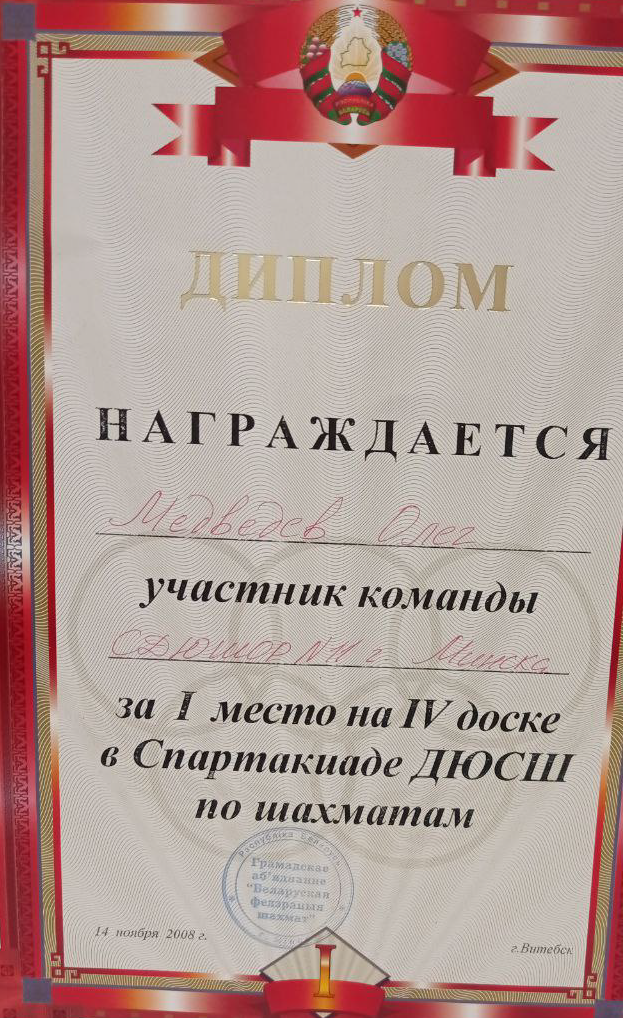 РЭСПУБЛІКА
БЕЛАРУСЬ
ДИПЛОМ
НАГРАЖДАЕТСЯ
Медведев Олег
участник команды
СДЮШОР №11 г Минска
за I место на IV доске
в Спартакиаде ДЮСШ
по шахматам
Рэспубліка Беларусь
Грамадскае
аб'яднанне
"Беларуская
федэрацыя
шахмат"
14 ноября 2008 г.
г.Витебск
I